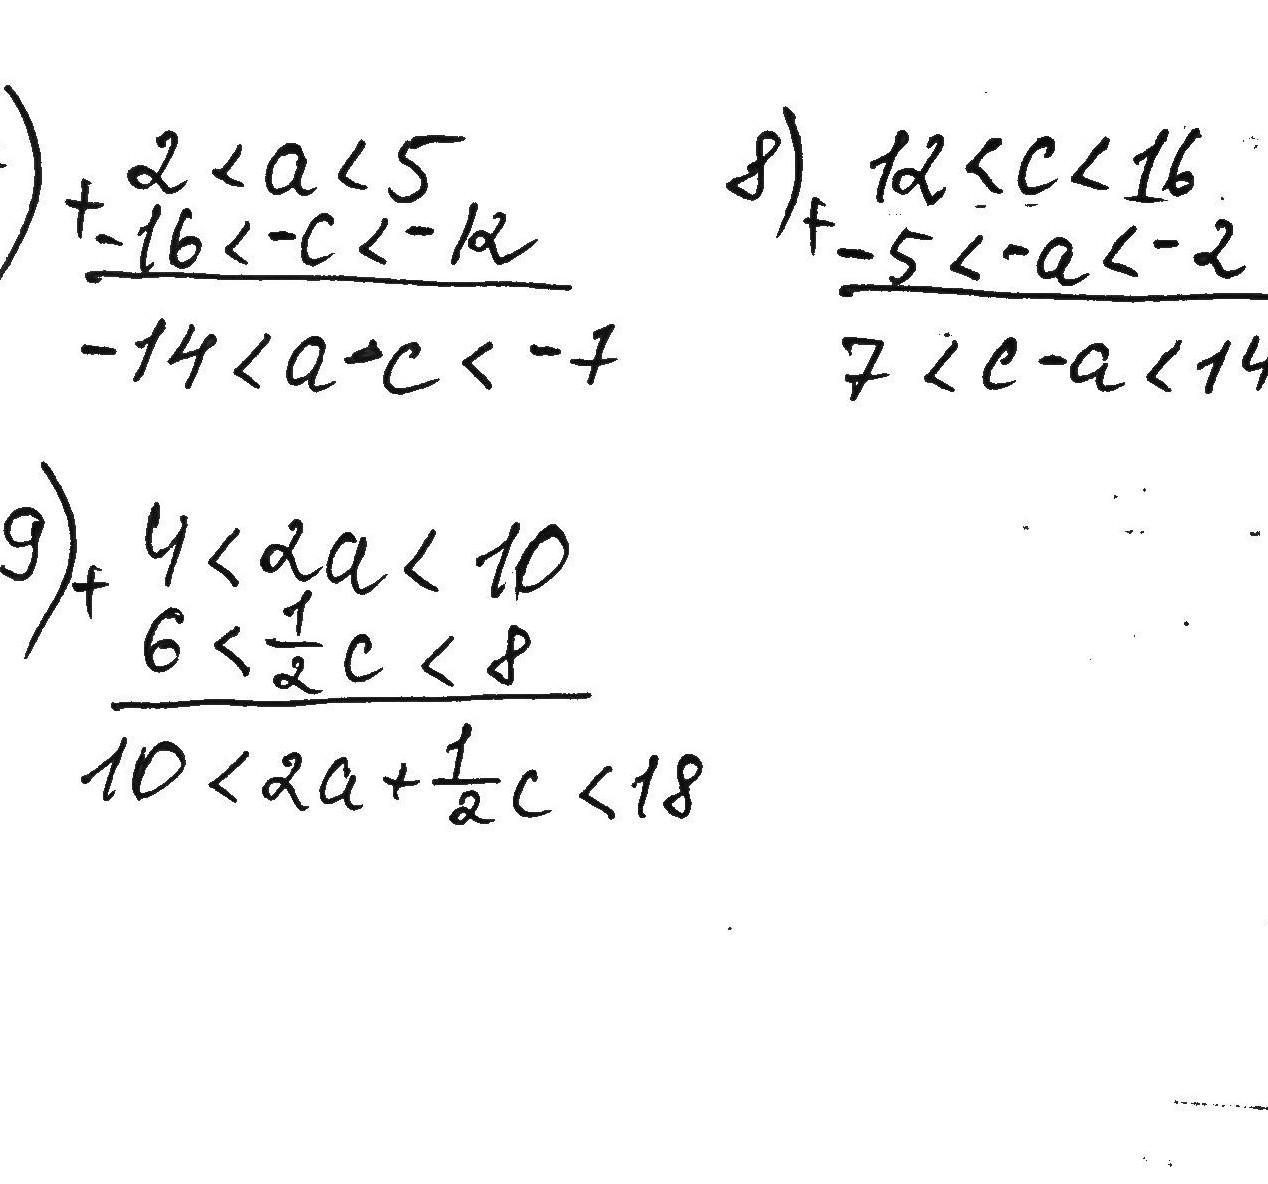 ) + 2 < a < 5
-16 < -c < -12
-14 < a - c < -7
8) + 12 < c < 16
-5 < -a < -2
7 < c - a < 14
9) + 4 < 2a < 10
6 < 1/2 c < 8
10 < 2a + 1/2 c < 18